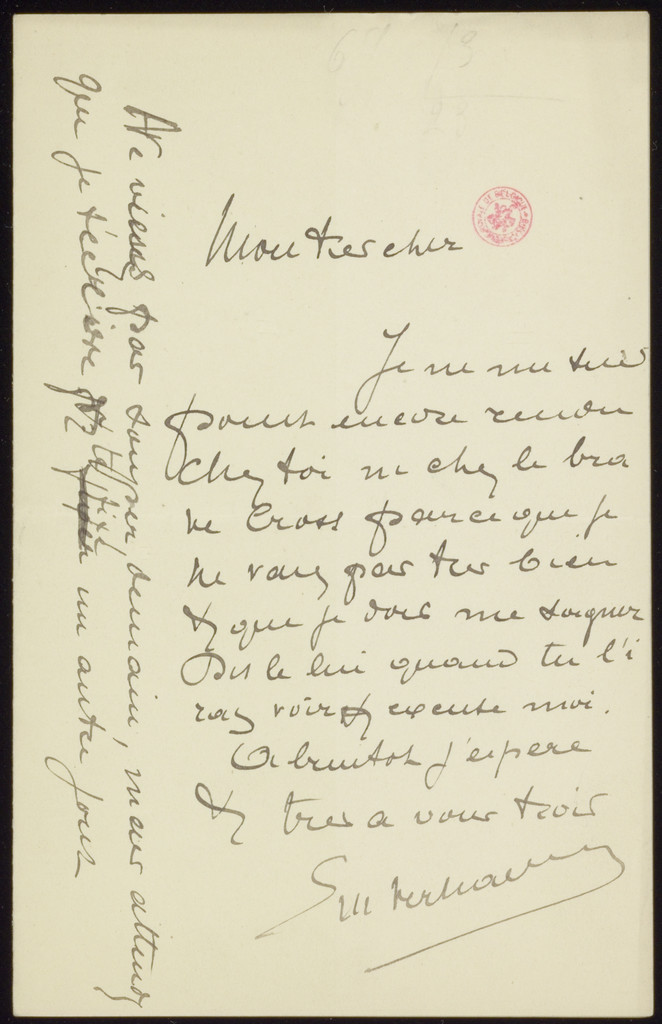 Mon tres cher
Je ne me suis
point encore rendu
chez toi ni chez le bra
ve Cross parce que je
ne vais pas tres bien
& que je dois me soigner
Dis le lui quand tu l'i
ras voir & excuse moi.
A bientot j'espere
& tres a vous trois
Em Verhaeren
Ne viens pas souper demain, mais attends
que je t'écrive & te fixe un autre jour